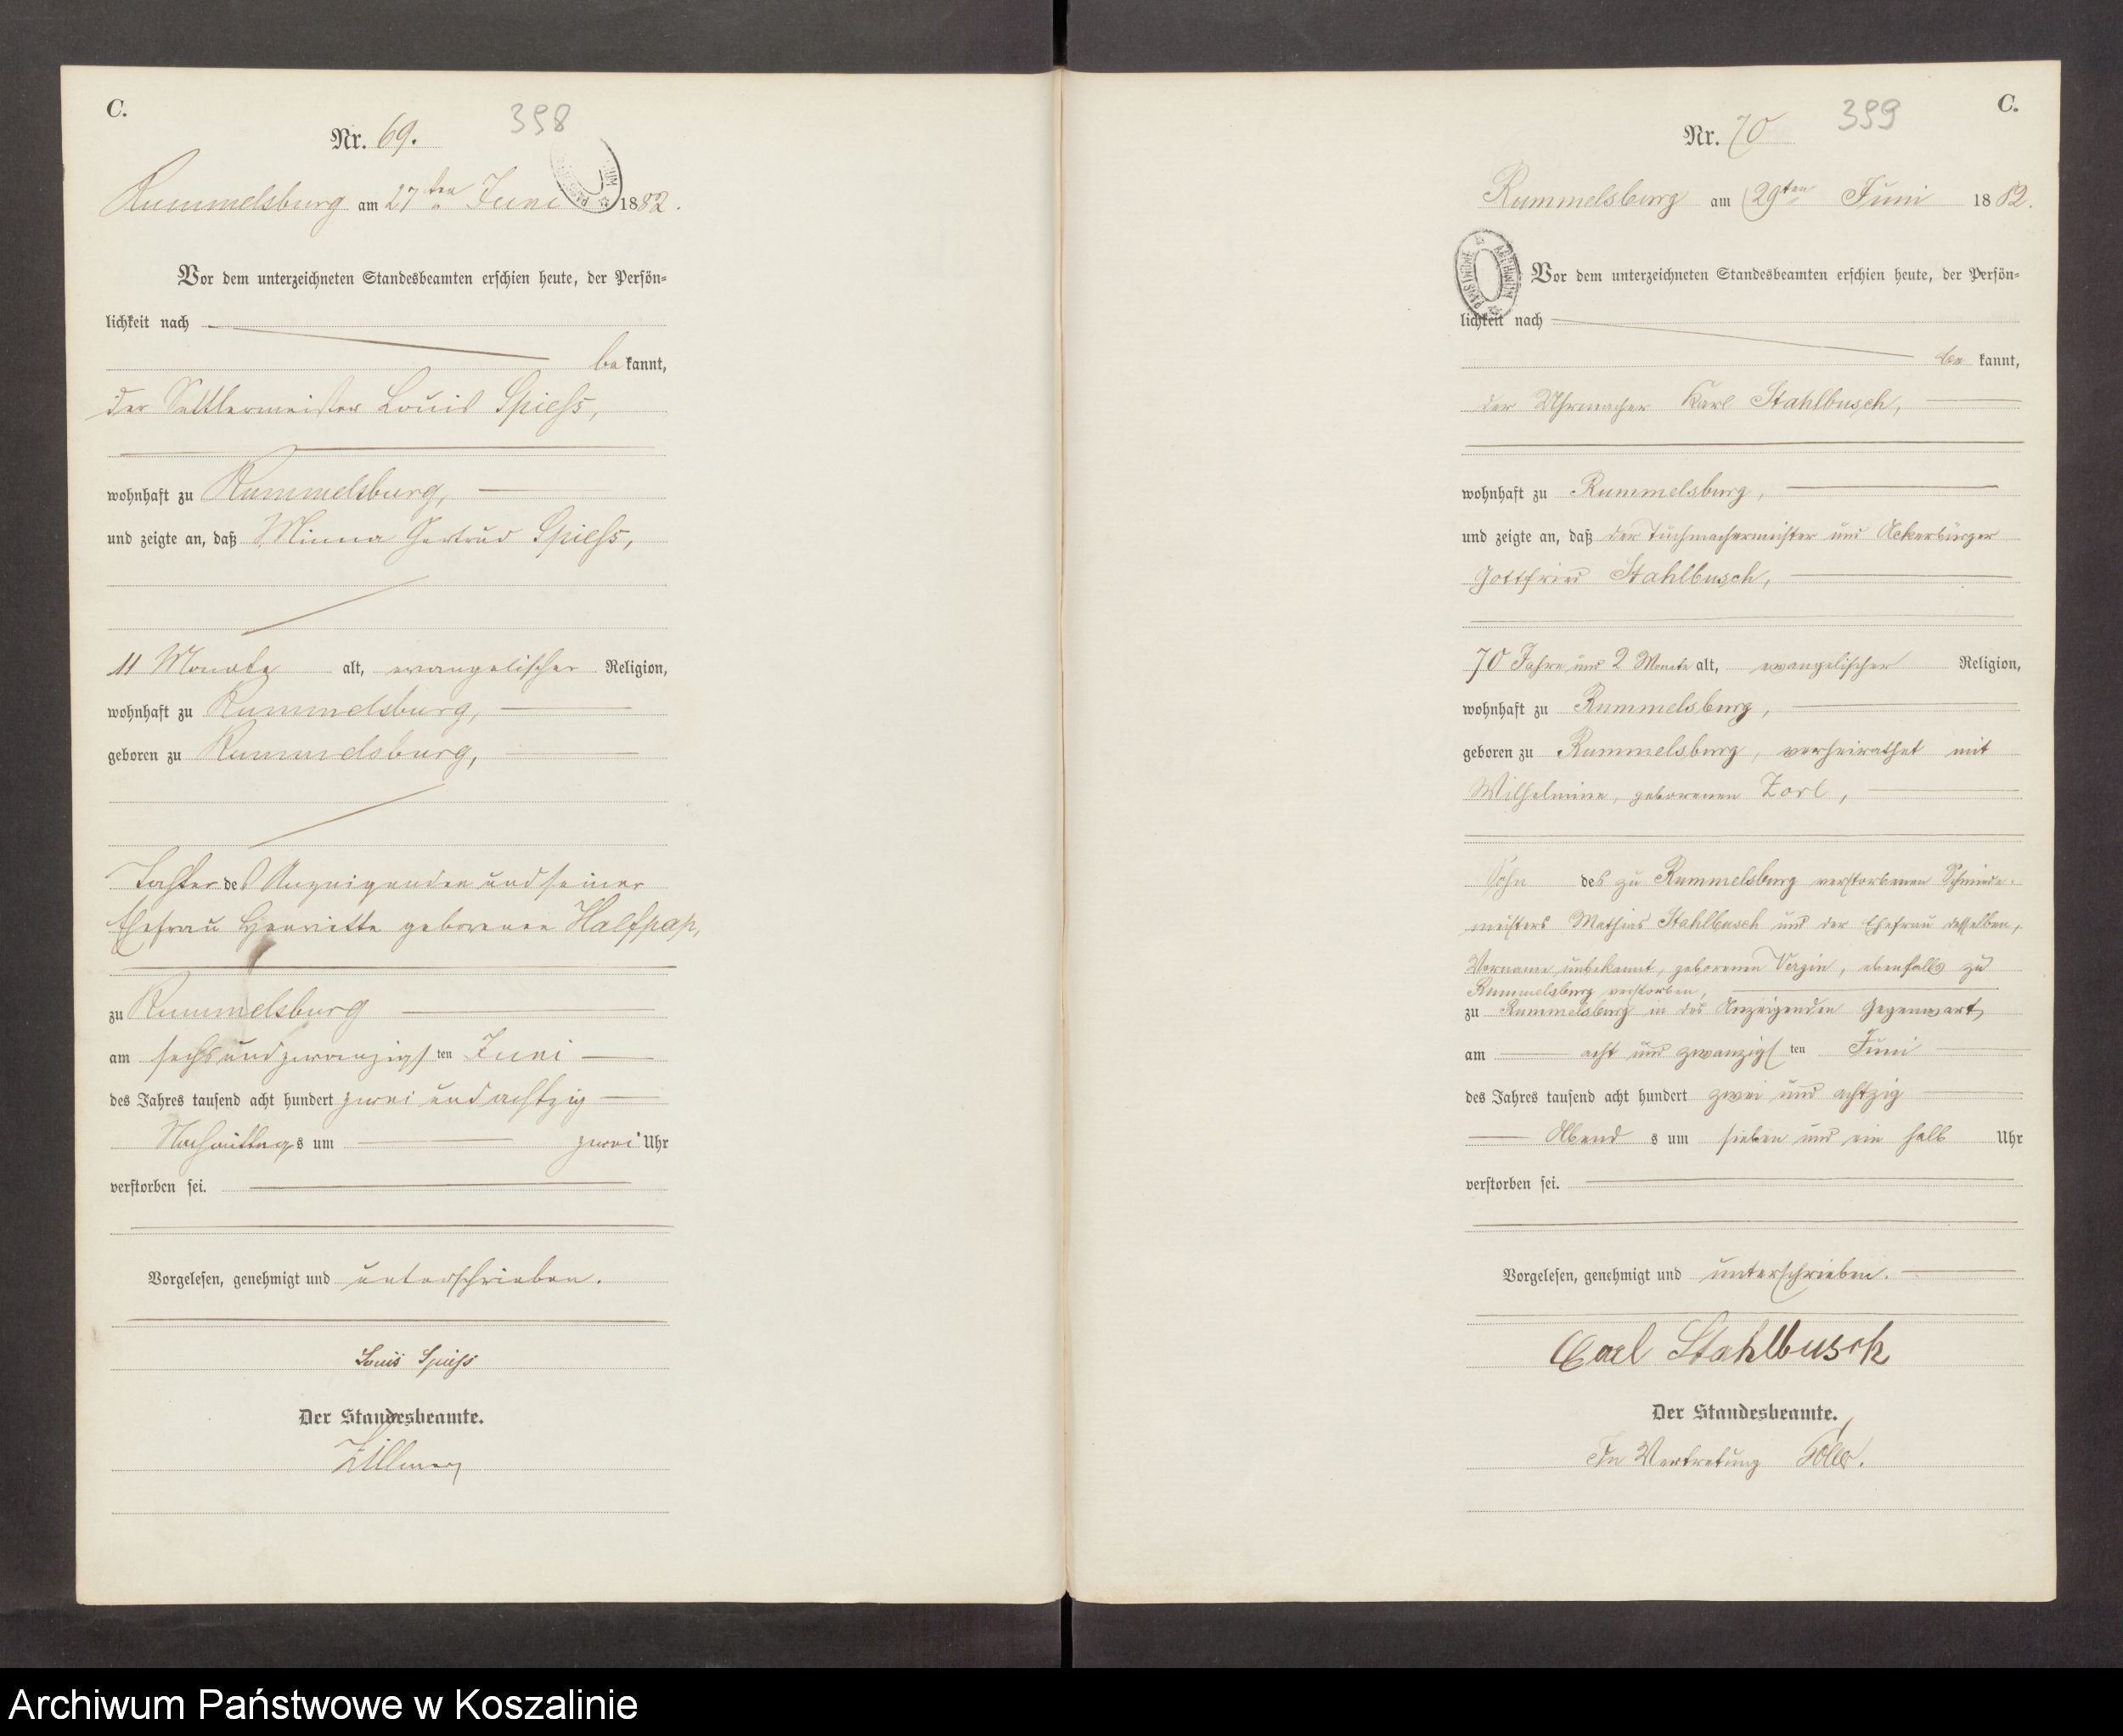 C.
398
Nr. 69.
Rummelsburg am 27ten Juni 1882.
Vor dem unterzeichneten Standesbeamten erschien heute, der Persön-
lichkeit nach
be kannt,
der Sattlermeister Louis Spiess,
wohnhaft zu Rummelsburg,
und zeigte an, daß Minna Gertrud Spiess,
11 Monate alt, evangelischer Religion,
wohnhaft zu Rummelsburg,
geboren zu Rummelsburg,
Tochter des Anzeigenden und seiner
Ehefrau Henriette geborenen Halfpap,
zu Rummelsburg
am sechsundzwanzigsten Juni
des Jahres tausend acht hundert zwei und achtzig
Nachmittags um zwei Uhr
verstorben sei.
Vorgelesen, genehmigt und unterschrieben.
Louis Spiess
Der Standesbeamte.
Zillmer
C.
399
Nr. 70
Rummelsburg am 29ten Juni 1882.
ARCHIWUM PAŃSTWOWE
Vor dem unterzeichneten Standesbeamten erschien heute, der Persön-
lichkeit nach
be kannt,
der Uhrmacher Karl Stahlbusch,
wohnhaft zu Rummelsburg,
und zeigte an, daß der Tuchmachermeister und Ackerbürger
Gottfried Stahlbusch,
70 Jahre und 2 Monate alt, evangelischer Religion,
wohnhaft zu Rummelsburg,
geboren zu Rummelsburg, verheirathet mit
Wilhelmine, geborenen Zorl,
Sohn des zu Rummelsburg verstorbenen Schmiede-
meisters Mathias Stahlbusch und der Ehefrau desselben,
Vorname unbekannt, geborenen Vergin, ebenfalls zu
Rummelsburg verstorben,
zu Rummelsburg in des Anzeigenden Gegenwart
am acht und zwanzigsten Juni
des Jahres tausend acht hundert zwei und achtzig
Abends um sieben und ein halb Uhr
verstorben sei.
Vorgelesen, genehmigt und unterschrieben.
Carl Stahlbusch
Der Standesbeamte.
In Vertretung
Archiwum Państwowe w Koszalinie